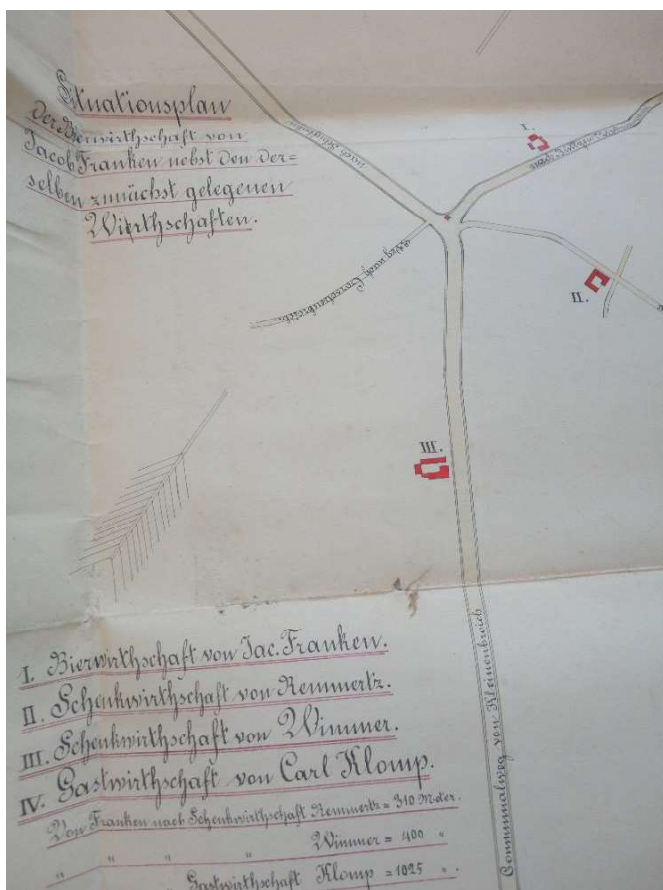 Situationsplan
der Bierwirthschaft von
Jacob Franken nebst den der=
selben zunächst gelegenen
Wirthschaften.
nach
I.
nach
Weg nach
II.
III.
Communalweg von Kleinenbroich
I. Bierwirthschaft von Jac. Franken.
II. Schenkwirthschaft von Remmertz.
III. Schenkwirthschaft von Wimmer.
IV. Gastwirthschaft von Carl Klomp.
Von Franken nach Schenkwirthschaft Remmertz = 310 Meter.
" " " " Wimmer = 400 "
" Gastwirthschaft Klomp = 1025 " .